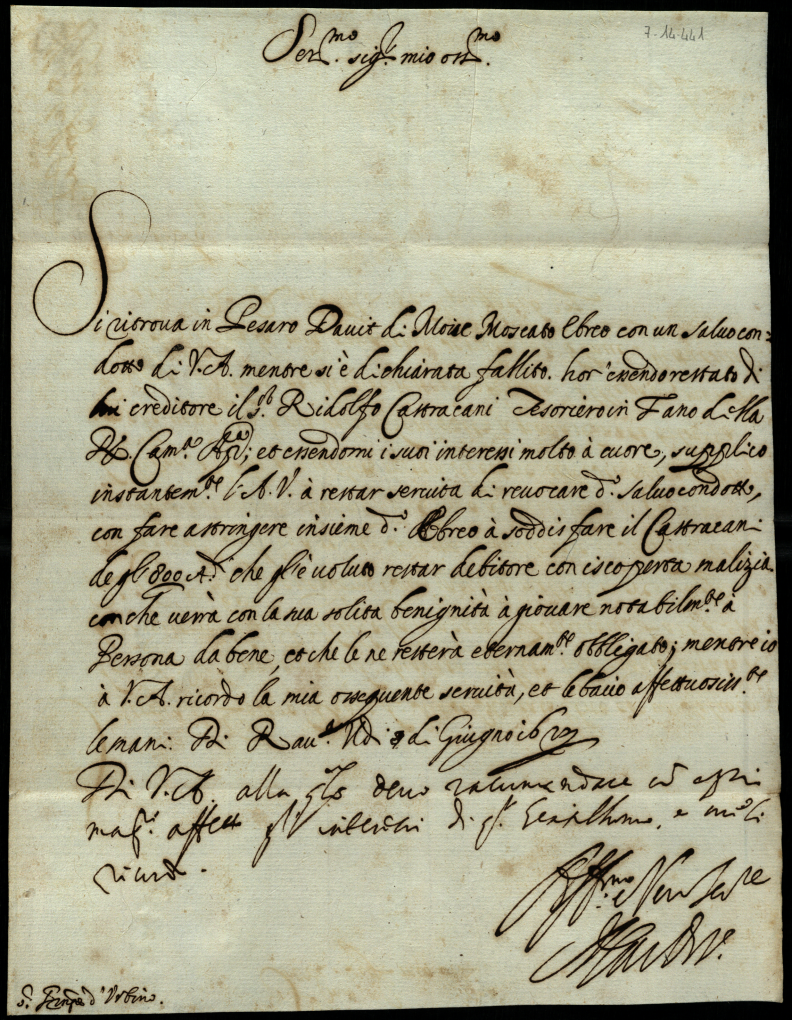 7-14-441
Ser.mo sig.r mio oss.mo
Si ritroua in Pesaro Dauit di Moise Moscato Ebreo con un saluocon=
dotto di V.A. mentre si è dichiarata fallito. hor' essendo restato di
lui creditore il s.r Ridolfo Castracani Tesoriero in Fano della
R. Cam.a Ap.ca; et essendomi i suoi interessi molto à cuore, supplico
instantem.te l'A.V. à restar seruita di reuocare d.o saluocondotto,
con fare astringere insieme d.o Ebreo à soddisfare il Castracani
degl' 800 che gl'è uoluto restar debitore con iscoperta malizia
con che uerrà con la sua solita benignità à giouare notabilm.te à
Persona da bene, et che le ne resterà eternam.te obbligato; mentre io
à V.A. ricordo la mia ossequente seruitù, et le bacio affettuosiss.te
le mani. Di Rau.a li di Giugno
Di V.A. alla q.le deuo raccomandare
mag.r affett gl' interessi di q.o Gentilhomo, e
ricord
Aff.mo
S.r Prn̄pe d' Vrbino.